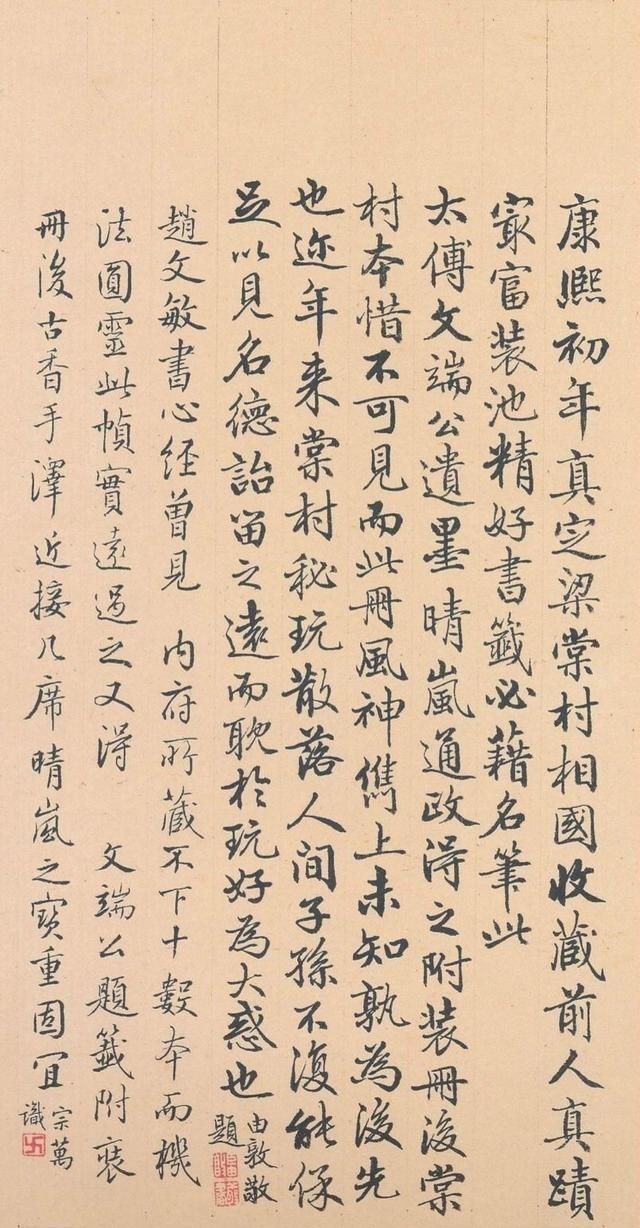 康熙初年真定梁棠村相國收藏前人真蹟
寂富装池精好書籤必藉名筆此
太傅文端公遺墨晴嵐通政得之附装冊後棠
村本惜不可見而此冊風神儁上未知孰為後先
也迩年来棠村秘玩散落人间子孫不復能保
足以見名德詒留之遠而耽於玩好為大惑也
由敦敬
題
趙文敏書心经曾見 内府所藏不下十數本而機
法圓靈此幀實遠過之又得 文端公題籤附裝
冊後古香手澤近接几席晴嵐之寶重固宜
宗萬
識
卍